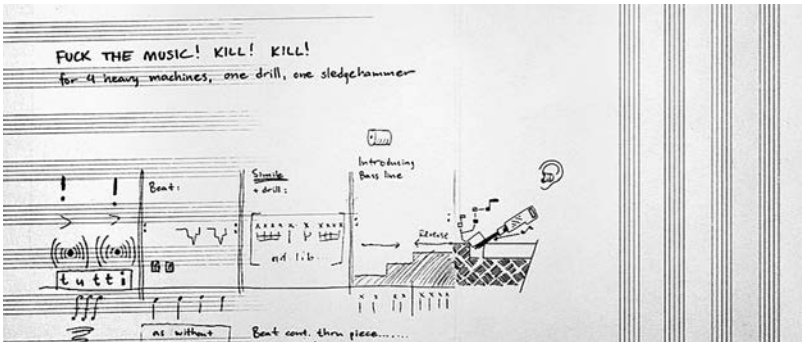 FUCK THE MUSIC! KILL! KILL!
for 4 heavy machines, one drill, one sledgehammer
Beat:
Simile
+ drill:
ad lib
Introducing
Bass line
Reverse
tutti
fff
as without
Beat cont. thru piece......